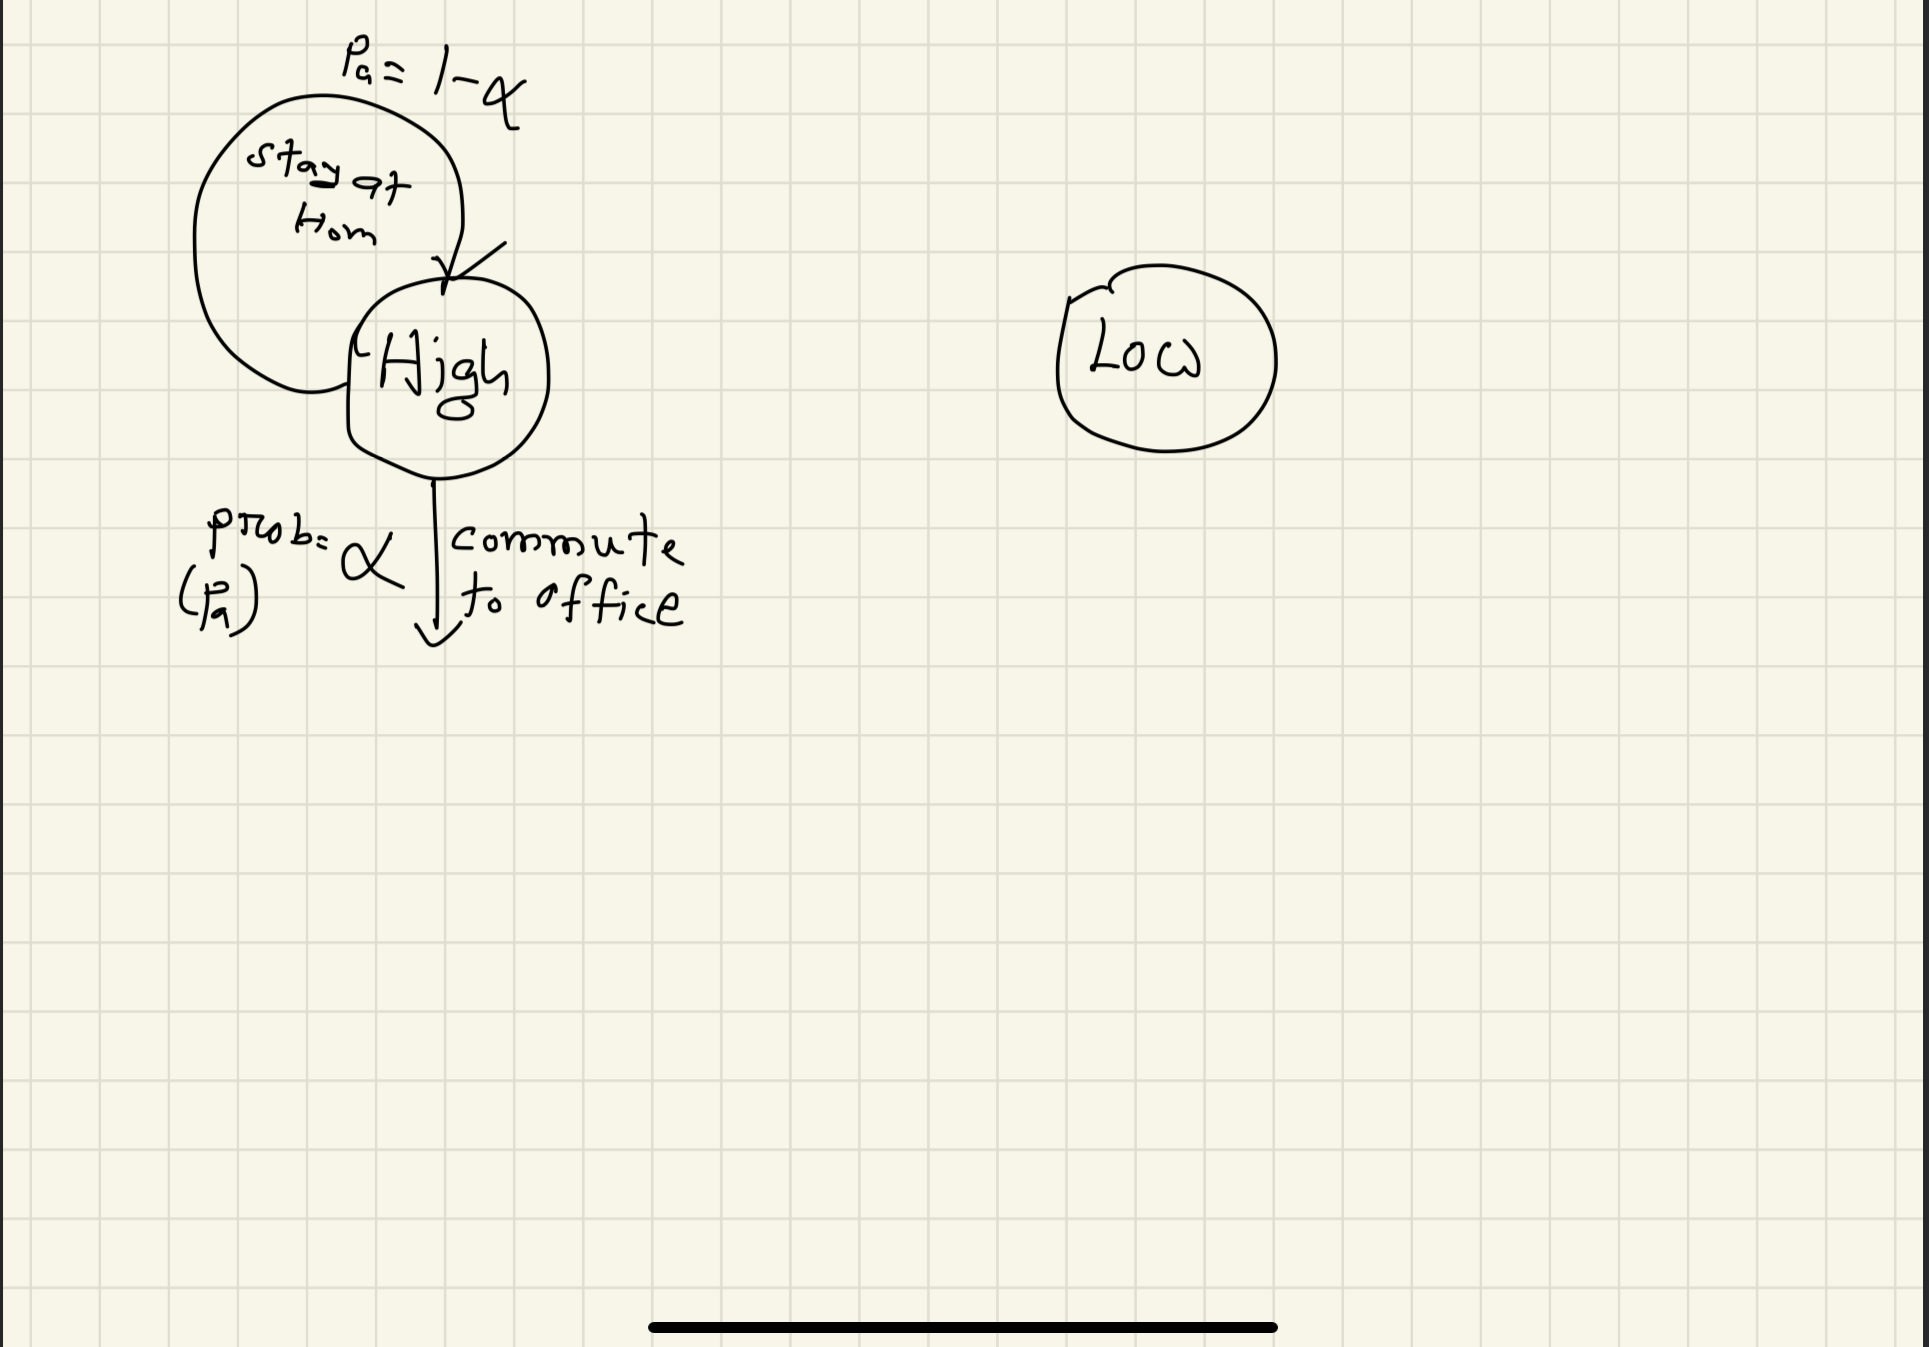 Pa = 1-α
stay at
Hom
High
Low
prob = α
(Pa)
commute
to office